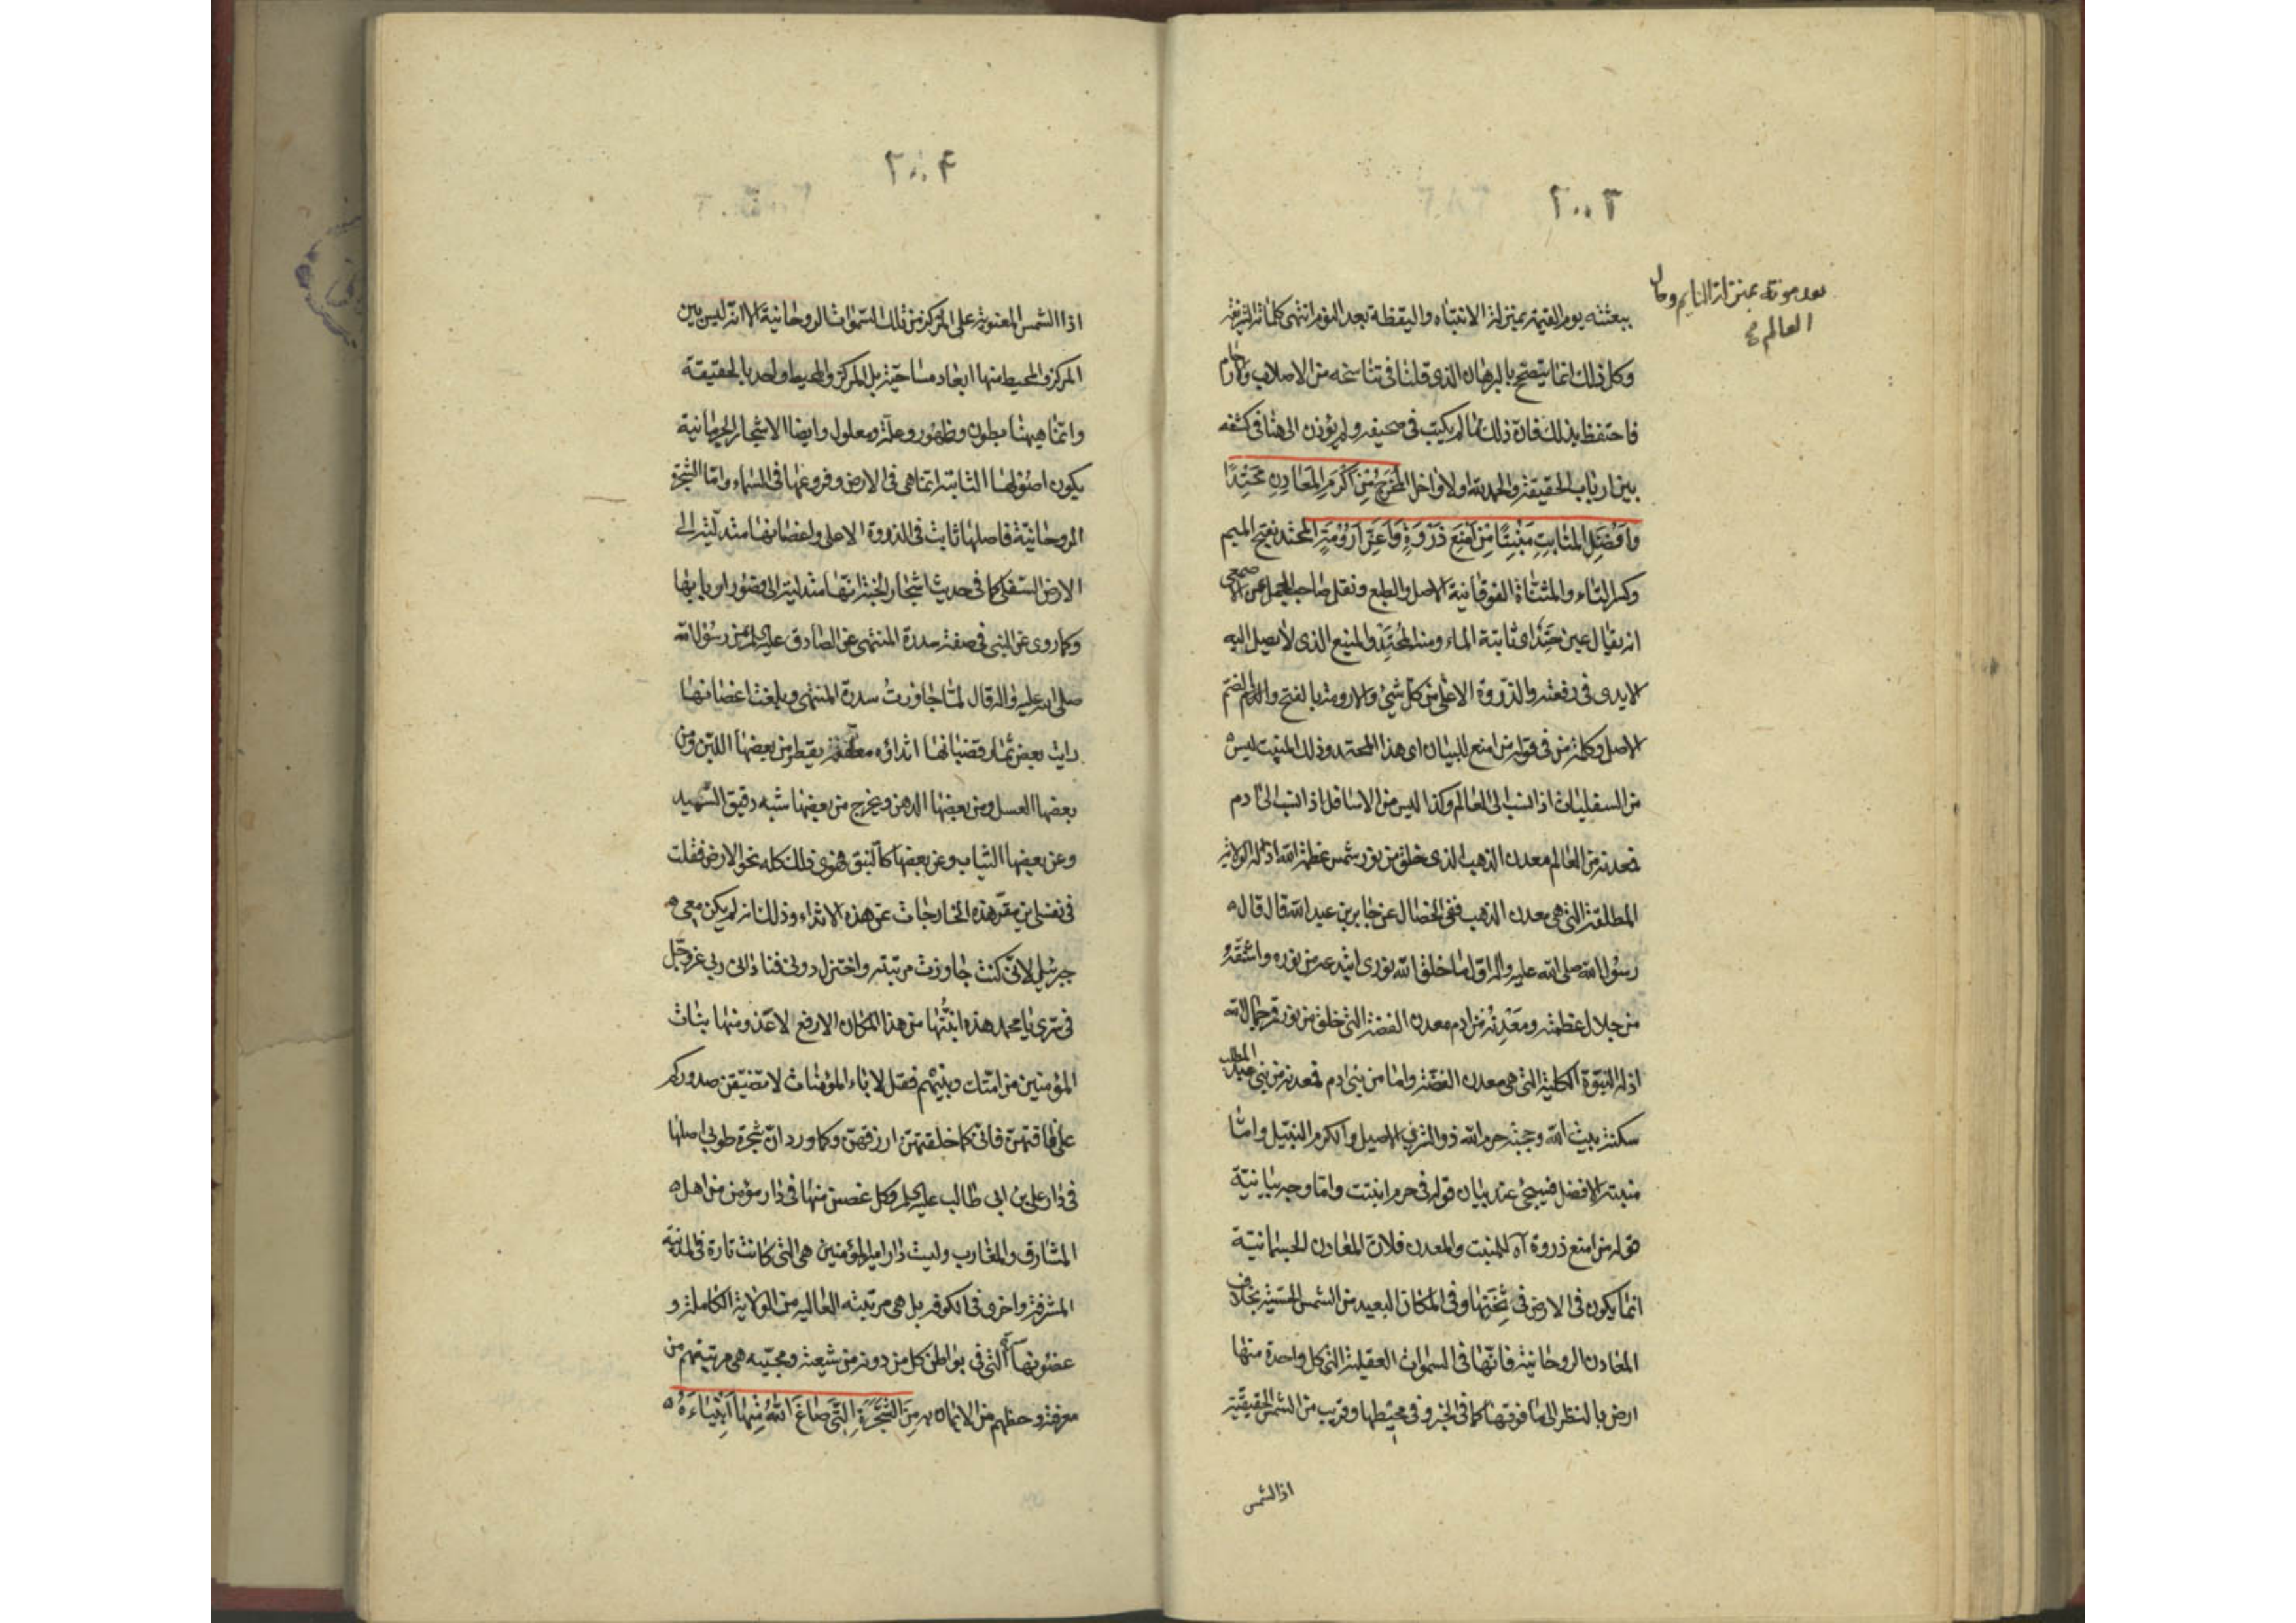 ٢٠٠٣
بعد موته بمنزلة النايم وحال
العالم
ببعثته يوم القيمة بمنزلة الانتباه واليقظة بعد النوم انتهى كلماته الشريفة
وكل ذلك انما يتضح بالبرهان الذي قلنا في تناسخه من الاصلاب والارحام
فاحتفظ بذلك فان ذلك مما لم يكتب في صحيفه ولم يؤذن الى هنا في كشفه
بين ارباب الحقيقة والحمد لله اولا واخرا اَكْرَمِ المَعَادِنِ مَحْتِدًا
وَاَفْضَلِ المَنَابِتِ مَنْبِتًا مِنْ اَمْنَعِ ذَرْوَةٍ وَاَعَزِّ اَرُوْمَةٍ المحتد بفتح الميم
وكسر التاء والمثناة الفوقانية الاصل والطبع ونقل صاحب المجمل عن الاصمعي
انه يقال عين حَتِدٌ اى ثابتة الماء ومنه المَحْتِد والمنيع الذى لا يصل اليه
الايدى فى رفعته والذروة الاعلى من كل شئ والارومة بالفتح والضم
الاصل وكلمة من فى قوله من امنع للبيان اى هذا المحتد وذلك المنبت ليس
من السفليات اذا نسب الى العالم وكذا ليس من الاسافل اذا نسب الى ادم
فمعدنه من العالم معدن الذهب الذى خلق من نور شمس عظمة الله اذ له الولاية
المطلقة التى هى معدن الذهب ففى الخصال عن جابر بن عبد الله قال قال
رسول الله صلى الله عليه واله اول ما خلق الله نورى ابتدعه من نوره واشتقه
من جلال عظمته ومَعْدِنُه من ادم معدن الفضة التى خلق من نور قمر جمال الله
اذ له النبوة الكلية التى هى معدن الفضة واما من بنى ادم فمعدنه من بنى عبد المطلب
سكنة بيت الله وحجبة حرم الله ذوالشرف الاصيل والكرم النبيل واما
منبته الافضل فسيجئ عند بيان قوله فى حرم انبتت واما وجه بيانية
قوله من امنع ذروة آه للمنبت والمعدن فلان المعادن الجسمانية
انما يكون فى الارض فى تخمتها وفى المكان البعيد من الشمس الحسية بخلاف
المعادن الروحانية فانها فى السموات العقلية التى كل واحدة منها
ارض بالنظر الى ما فوقها كما فى الخبر وفى محيطها وقريب من الشمس الحقيقية
اذا الشمس
٢٠٠۴
اذا الشمس المعنوية على المركز من تلك السموات الروحانية الا انه ليس بين
المركز والمحيط منها ابعاد مساحية بل المركز والمحيط واحد بالحقيقة
وانما هيهنا بطون وظهور وعلة ومعلول وايضا الاشجار الجرمانية
يكون اصولها الثابتة انما هى فى الارض وفروعها فى السماء واما الشجرة
الروحانية فاصلها ثابت فى الذروة الاعلى واغصانها متدلية الى
الارض السفلى كما فى حديث اشجار الجنة انها متدلية الى قصور اربابها
وكما روى عن النبى فى صفة سدرة المنتهى عن الصادق عليه السلم عن رسول الله
صلى الله عليه واله قال لما جاوزت سدرة المنتهى وبلغت اغصانها
رايت بعض ثمار قضبانها اثداؤه معلقة يقطر من بعضها اللبن ومن
بعضها العسل ومن بعضها الدهن ويخرج من بعضها شبه دقيق السميد
وعن بعضها الثياب وعن بعضها كالنبق فهوى ذلك كله نحو الارض فقلت
فى نفسى اين مقر هذه الخارجات عن هذه الاثداء وذلك انه لم يكن معى
جبرئيل لانى كنت جاوزت مرتبته واختزل دونى فنادانى ربى عز وجل
فى سرى يا محمد هذه انبتُّها من هذا المكان الارفع لاغذو منها بنات
المؤمنين من امتك وبنيهم فقل لاباء المؤمنات لا تضيقن صدوركم
على فاقتهن فانى كما خلقتهن ارزقهن وكما ورد ان شجرة طوبى اصلها
فى دار على بن ابى طالب عليه السلم وكل غصن منها فى دار مؤمن من اهل
المشارق والمغارب وليست دار امير المؤمنين هى التى كانت تارة فى المدينة
المشرفة واخرى فى الكوفه بل هى مرتبته العاليه من الولاية الكاملة و
غصونها التى فى بواطن كل من دونه من شيعته ومحبيه هى مرتبتهم من
معرفته وحظهم من الايمان به مِنَ الشَّجَرَةِ الَّتِى صَاغَ اللهُ مِنْهَا اَنْبِيَاءَهُ